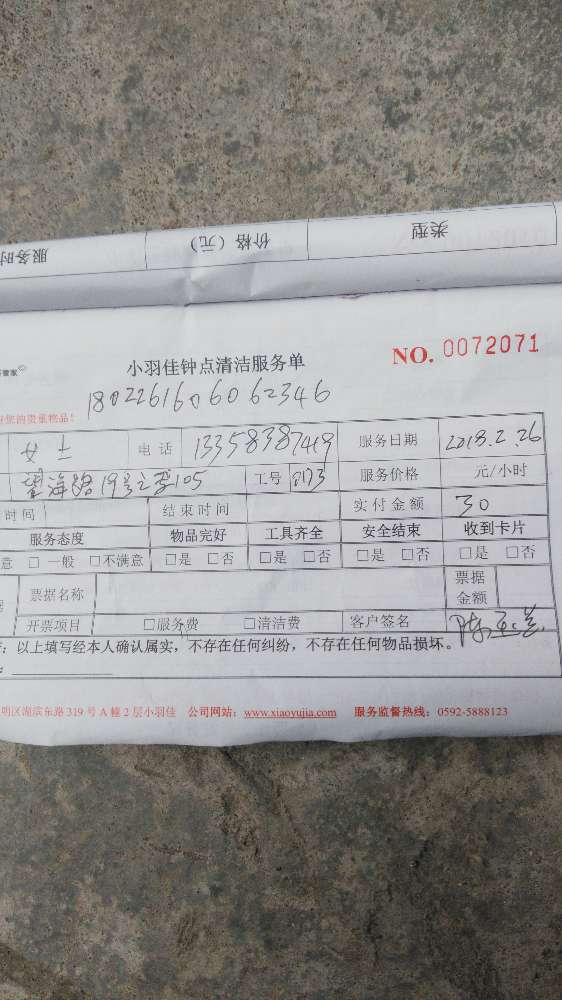 服务时 价格（元） 类型
管家
小羽佳钟点清洁服务单 NO. 0072071
18022616060 62346
您的贵重物品！
女士 电话 13358387419 服务日期 2018.2.26
望海路19号之 105 工号 服务价格 元/小时
时间 结束时间 实付金额 30
服务态度 物品完好 工具齐全 安全结束 收到卡片
意 □ 一般 □不满意 □是 □否 □是 □否 □是 □否 □是 □否
票据名称 票据金额
开票项目 □服务费 □清洁费 客户签名
：以上填写经本人确认属实，不存在任何纠纷，不存在任何物品损坏。
明区湖滨东路 319 号 A 幢 2 层小羽佳 公司网站：www.xiaoyujia.com 服务监督热线：0592-5888123